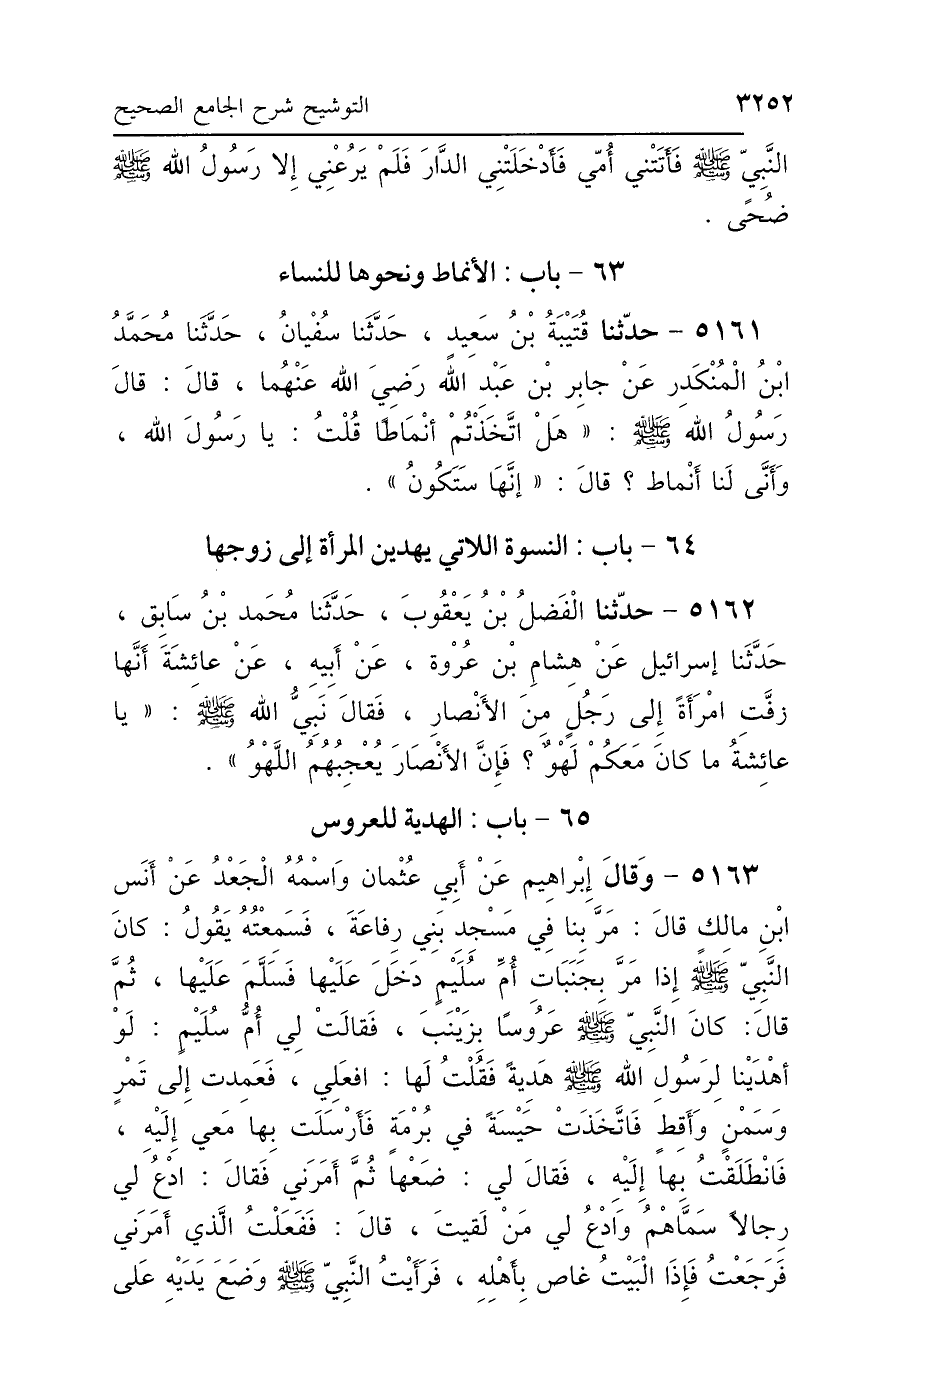 ٣٢٥٢ التوشيح شرح الجامع الصحيح
النَّبِيّ ﷺ فَأَتَتْني أُمّي فَأَدْخَلَتْني الدَّارَ فَلَمْ يَرُعْنِي إلا رَسُولُ الله ﷺ
ضُحًى .
٦٣ – باب : الأنماط ونحوها للنساء
٥١٦١ – حدّثنا قُتَيْبَةُ بْنُ سَعِيدٍ ، حَدَّثَنا سُفْيانُ ، حَدَّثَنا مُحَمَّدُ
ابْنُ الْمُنْكَدِر عَنْ جابِر بْن عَبْدِ الله رَضِيَ الله عَنْهُما ، قالَ : قالَ
رَسُولُ الله ﷺ : « هَلْ اتَّخَذْتُمْ أنْمَاطًا قُلْتُ : يا رَسُولَ الله ،
وَأَنَّى لَنا أَنْماط ؟ قالَ : « إنَّهَا سَتَكُونُ » .
٦٤ – باب : النسوة اللاتي يهدين المرأة إلى زوجها
٥١٦٢ – حدّثنا الْفَضلُ بْنُ يَعْقُوبَ ، حَدَّثَنا مُحَمد بْنُ سَابِق ،
حَدَّثَنا إسرائيل عَنْ هِشامِ بْن عُرْوة ، عَنْ أبيهِ ، عَنْ عائِشَةَ أَنَّها
زفَّتِ امْرَأَةً إلى رَجُلٍ مِنَ الأَنْصارِ ، فَقالَ نَبِيُّ الله ﷺ : « يا
عائِشةُ ما كانَ مَعَكُمْ لَهْوٌ ؟ فَإنَّ الأَنْصَارَ يُعْجِبُهُمُ اللَّهْوُ » .
٦٥ – باب : الهدية للعروس
٥١٦٣ – وَقالَ إبْراهِيم عَنْ أبي عُثْمان وَاسْمُهُ الْجَعْدُ عَنْ أنَس
ابْنِ مالِكٍ قالَ : مَرَّ بنا فِي مَسْجِدِ بَنِي رِفاعَةَ ، فَسَمِعْتُه يَقُولُ : كانَ
النَّبِيّ ﷺ إذا مَرَّ بِجَنَبَاتِ أُمِّ سُلَيْمٍ دَخَلَ عَلَيْها فَسَلَّمَ عَلَيْها ، ثُمَّ
قالَ: كانَ النَّبِيّ ﷺ عَرُوسًا بِزَيْنَبَ ، فَقالَتْ لِي أُمُّ سُلَيْمٍ : لَوْ
أهْدَيْنا لِرَسُولِ الله ﷺ هَدِيةً فَقُلْتُ لَها : افعلي ، فَعَمِدت إلى تَمْرٍ
وَسَمْنٍ وَأَقِطٍ فَاتَّخَذَتْ حَيْسَةً في بُرْمَةٍ فَأَرْسَلَت بها مَعي إلَيْهِ ،
فَانْطَلَقْتُ بِها إلَيْهِ ، فَقالَ لي : ضَعْها ثُمَّ أمَرَني فَقالَ : ادْعُ لي
رجالاً سَمَّاهْمُ وَادْعُ لي مَنْ لَقيتَ ، قالَ : فَفَعَلْتُ الَّذي أمَرَني
فَرَجَعْتُ فَإِذَا الْبَيْتُ غاص بِأَهْلِهِ ، فَرَأَيْت النَّبِيّ ﷺ وَضَعَ يَدَيْهِ عَلى